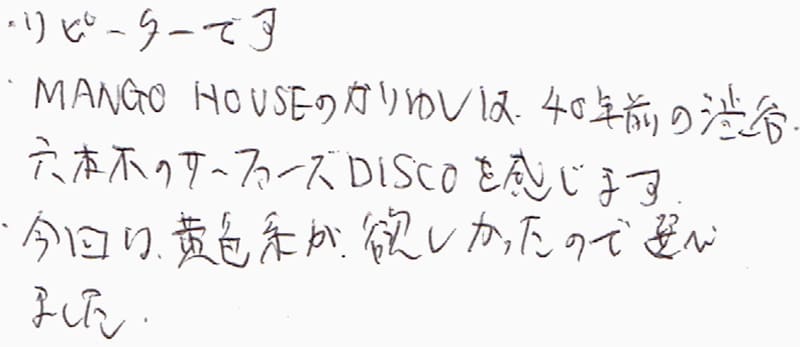 ・リピーターです
・MANGO HOUSEのかりゆしは、40年前の渋谷.
六本木のサーファーズDISCOを感じます。
・今回は、黄色系が、欲しかったので選び
ました.